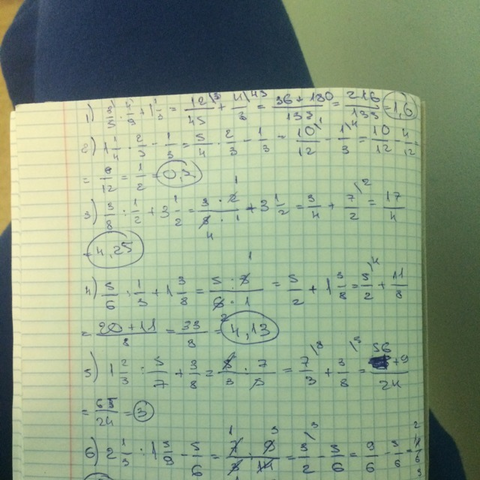 1) 3/5 · 4/9 + 1 1/3 = 12/45 + 4/3 = (36 + 180)/135 = 216/135 = 1,6
2) 1 1/4 · 2/3 - 1/3 = 5/4 · 2/3 - 1/3 = 10/12 - 1/3 = 10/12 - 4/12
= 6/12 = 1/2 = 0,5
3) 3/8 : 1/2 + 3 1/2 = (3 · 2)/(8 · 1) + 3 1/2 = 3/4 + 7/2 = 17/4
= 4,25
4) 5/6 : 1/3 + 1 3/8 = (5 · 3)/(6 · 1) = 5/2 + 1 3/8 = 5/2 + 11/8
= (20 + 11)/8 = 33/8 = 4,13
5) 1 2/3 : 5/7 + 3/8 = (5 · 7)/(3 · 5) = 7/3 + 3/8 = (56 + 9)/24
= 65/24 = 3
6) 2 1/3 : 1 5/9 - 5/6 = (7 · 9)/(3 · 14) = 3/2 - 5/6 = 9/6 - 5/6 =